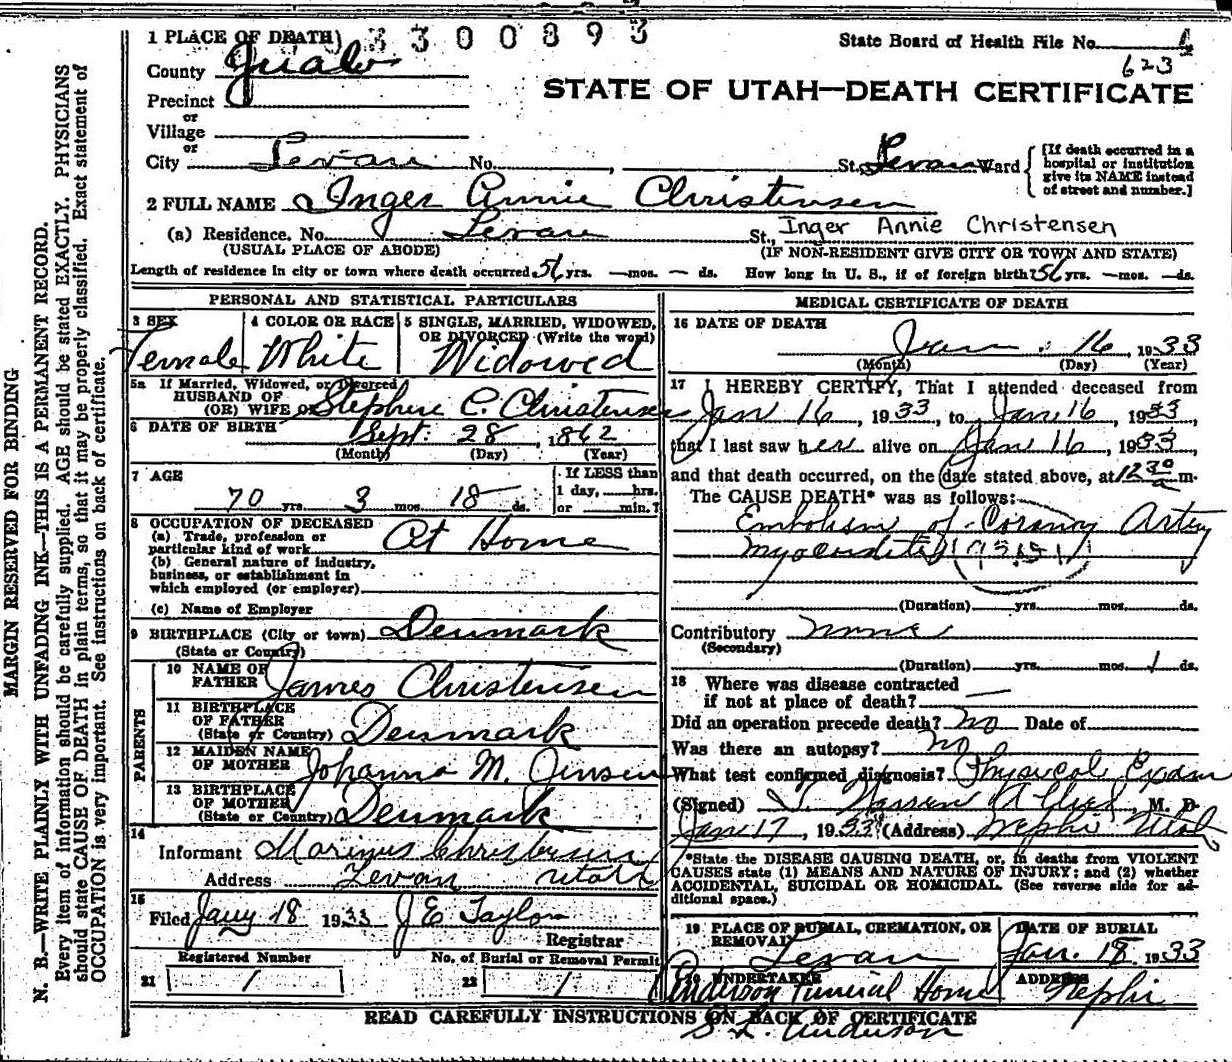 3300893
1 PLACE OF DEATH
State Board of Health File No. 4
623
County Juab
STATE OF UTAH—DEATH CERTIFICATE
Precinct
or
Village
or
City Levan No. , St. Levan Ward
[If death occurred in a hospital or institution give its NAME instead of street and number.]
2 FULL NAME Inger Annie Christensen
(a) Residence. No. Levan St., Inger Annie Christensen
(USUAL PLACE OF ABODE) (IF NON-RESIDENT GIVE CITY OR TOWN AND STATE)
Length of residence in city or town where death occurred 56 yrs. — mos. — ds. How long in U. S., if of foreign birth? 56 yrs. — mos. — ds.
PERSONAL AND STATISTICAL PARTICULARS
3 SEX Female
4 COLOR OR RACE White
5 SINGLE, MARRIED, WIDOWED, OR DIVORCED (Write the word) Widowed
5a If Married, Widowed, or Divorced
HUSBAND OF
(OR) WIFE OF Stephen C. Christensen
6 DATE OF BIRTH Sept. 28, 1862
(Month) (Day) (Year)
7 AGE
70 yrs. 3 mos. 18 ds.
If LESS than
1 day, hrs.
or min.?
8 OCCUPATION OF DECEASED
(a) Trade, profession or
particular kind of work At Home
(b) General nature of industry,
business, or establishment in
which employed (or employer)
(c) Name of Employer
9 BIRTHPLACE (City or town) Denmark
(State or Country)
PARENTS
10 NAME OF
FATHER James Christensen
11 BIRTHPLACE
OF FATHER
(State or Country) Denmark
12 MAIDEN NAME
OF MOTHER Johanna M. Jensen
13 BIRTHPLACE
OF MOTHER
(State or Country) Denmark
14
Informant Marinus Christensen
Address Levan Utah
15
Filed Jany 18 1933 J E Taylor
Registrar
Registered Number No. of Burial or Removal Permit
21 1 22 1
MEDICAL CERTIFICATE OF DEATH
16 DATE OF DEATH
Jan. 16, 1933
(Month) (Day) (Year)
17 I HEREBY CERTIFY, That I attended deceased from
Jan 16, 1933, to Jan 16, 1933,
that I last saw her alive on Jan 16, 1933
and that death occurred, on the date stated above, at 12 30 a m.
The CAUSE DEATH* was as follows:
Embolism of Coronary Artery
Myocarditis
(Duration) yrs. mos. ds.
Contributory None
(Secondary)
(Duration) yrs. mos. 1 ds.
18 Where was disease contracted
if not at place of death? —
Did an operation precede death? No Date of
Was there an autopsy? No
What test confirmed diagnosis? Physical Exam
(Signed) M. D.
Jan 17, 1933 (Address) Nephi Utah
*State the DISEASE CAUSING DEATH, or, in deaths from VIOLENT
CAUSES state (1) MEANS AND NATURE OF INJURY; and (2) whether
ACCIDENTAL, SUICIDAL OR HOMICIDAL. (See reverse side for ad-
ditional space.)
19 PLACE OF BURIAL, CREMATION, OR REMOVAL Levan
DATE OF BURIAL Jan. 18, 1933
20 UNDERTAKER Anderson Funeral Home
ADDRESS Nephi
READ CAREFULLY INSTRUCTIONS ON BACK OF CERTIFICATE
S. L. Anderson
MARGIN RESERVED FOR BINDING
N. B.—WRITE PLAINLY WITH UNFADING INK—THIS IS A PERMANENT RECORD.
Every item of information should be carefully supplied. AGE should be stated EXACTLY. PHYSICIANS
should state CAUSE OF DEATH in plain terms, so that it may be properly classified. Exact statement of
OCCUPATION is very important. See instructions on back of certificate.